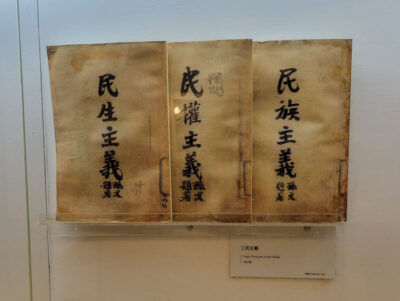 民族主義
孫文題署
民權主義
孫文題署
民生主義
孫文題署
三民主義